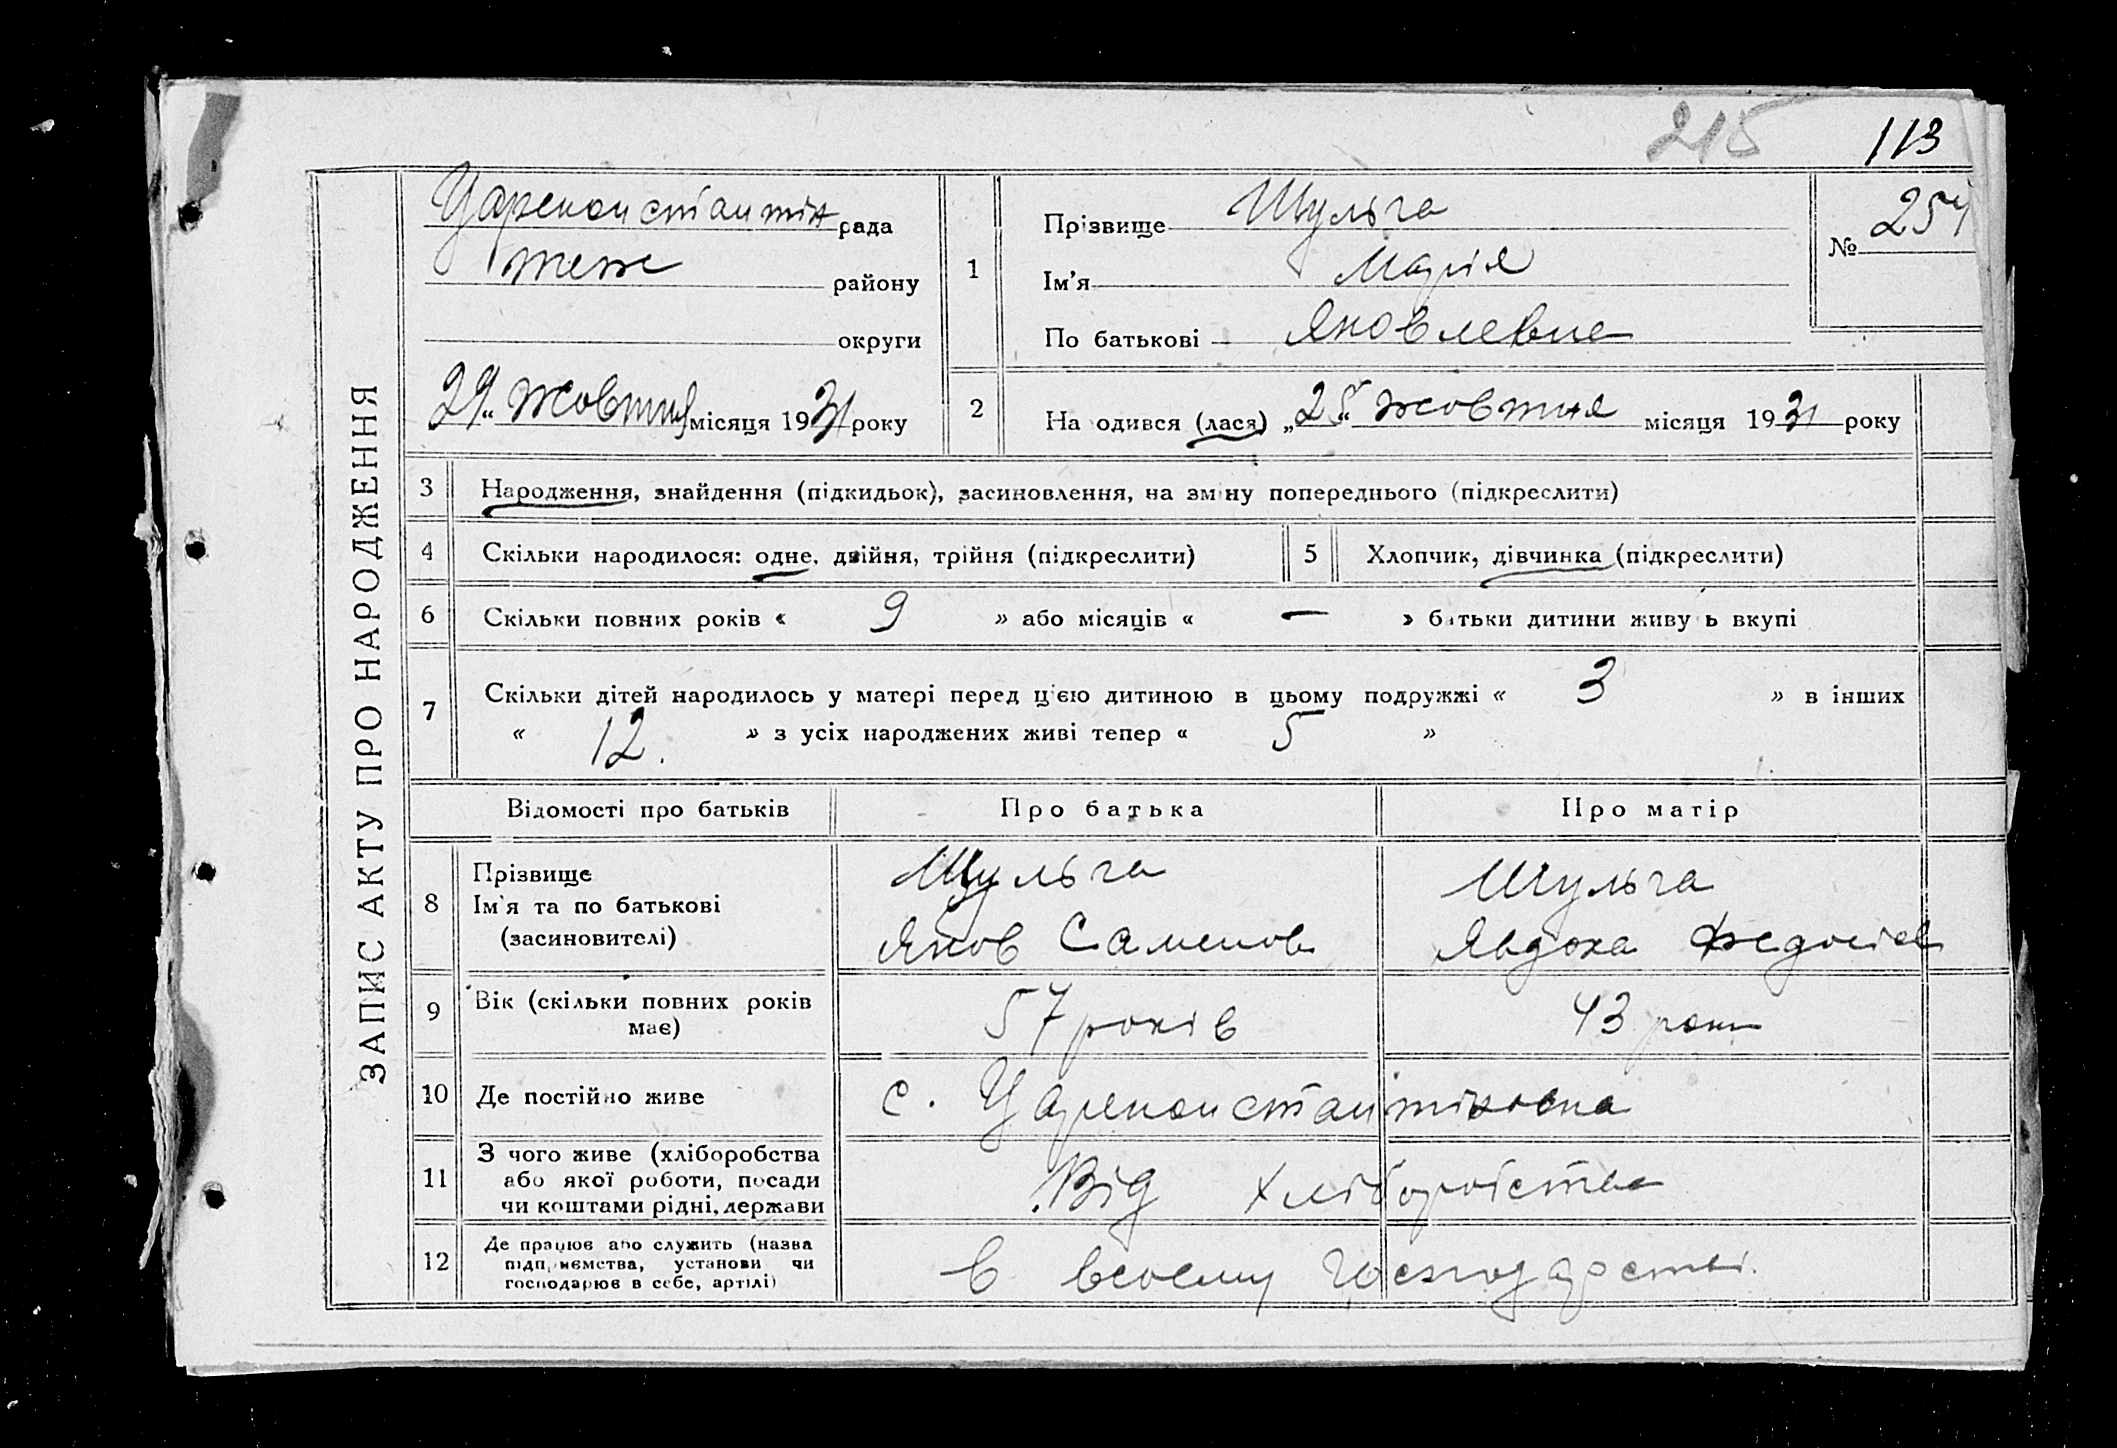 215 113
ЗАПИС АКТУ ПРО НАРОДЖЕННЯ
Цареконстантин рада
теж району
округи
29 жовтня місяця 1931 року
1
Прізвище Шульга
Ім'я Марія
По батькові Яковлевне
№ 254
2 На одився (лася) „25" жовтня місяця 1931 року
3 Народження, знайдення (підкидьок), засиновлення, на зміну попереднього (підкреслити)
4 Скільки народилося: одне, двійня, трійня (підкреслити) 5 Хлопчик, дівчинка (підкреслити)
6 Скільки повних років « 9 » або місяців « — » батьки дитини живу ь вкупі
7 Скільки дітей народилось у матері перед цією дитиною в цьому подружжі « 3 » в інших
« 12. » з усіх народжених живі тепер « 5 »
Відомості про батьків Про батька Про матір
8 Прізвище
Ім'я та по батькові
(засиновителі)
Шульга
Яков Саменов
Шульга
Явдоха Федосіев
9 Вік (скільки повних років
має)
57 років 43 роки
10 Де постійно живе с. Цареконстантіновка
11 З чого живе (хліборобства
або якої роботи, посади
чи коштами рідні, держави
Від хліборобства
12 Де працює або служить (назва
підприємства, установи чи
господарює в себе, артілі)
в своєму господарстві.